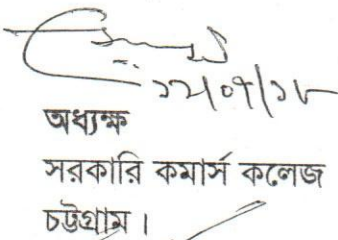 ১২/০৭/১৮
অধ্যক্ষ
সরকারি কমার্স কলেজ
চট্টগ্রাম।